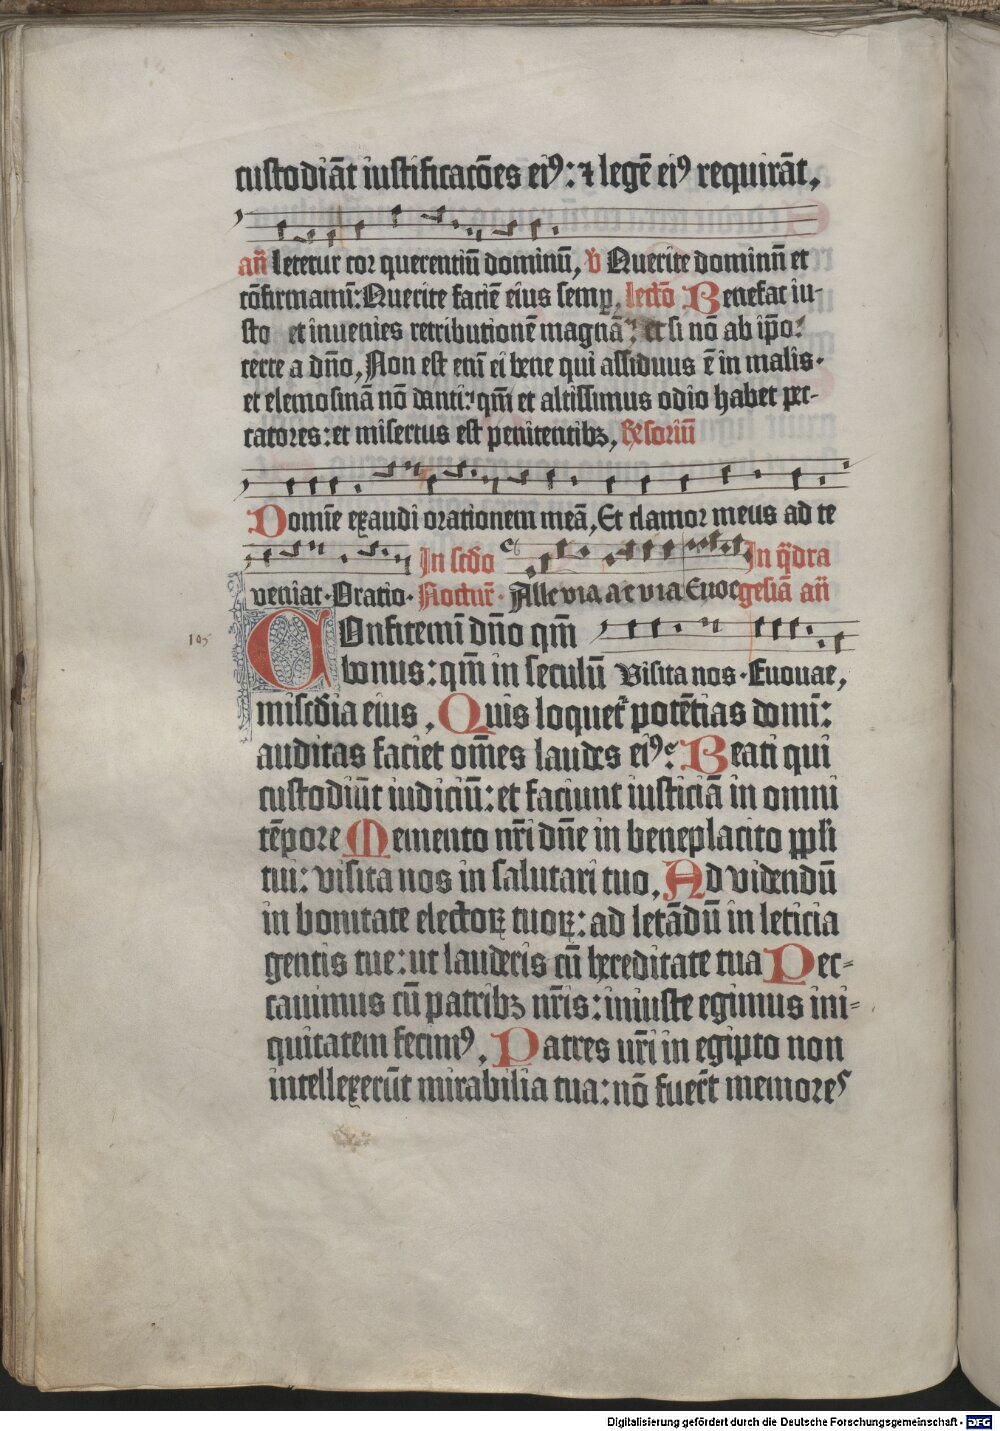 custodiāt iustificacōes eiꝰ: ⁊ legē eiꝰ requirāt,
añ letetur cor querentiū dominū, v Querite dominū et
cōfirmamī: Querite faciē eius semꝑ, lectō Benefac iu-
sto et inuenies retributionē magnā: et si nō ab ip̄o:
certe a dño, Non est enī ei bene qui assiduus ē in malis·
et elemosinā nō danti: qm̄ et altissimus odio habet pec-
catores: et misertus est penitentibꝫ, Rx̄soriū
Domīe exaudi orationem meā, Et clamor meus ad te
veniat· Oratio· In scdo Nocturͬ· Alleviaaevia Euoe In q̄dragesiā añ
105
COnfitemī dño qm̄
bonus: qm̄ in seculū Visita nos· Euouae,
miscd̄ia eius, Quis loquetͬ potētias domī:
auditas faciet om̄es laudes eiꝰ: Beati qui
custodiūt iudiciū: et faciunt iusticiā in omni
tēpore Memento nr̄i dn̄e in beneplacito ppl̄i
tui: visita nos in salutari tuo, Ad videndū
in bonitate electoꝝ tuoꝝ: ad letādū in leticia
gentis tue: ut lauderis cū hereditate tua Pec-
cauimus cū patribꝫ nr̄is: iniuste egimus ini-
quitatem fecimꝰ, Patres nr̄i in egipto non
intellexerūt mirabilia tua: nō fuer̄t memores
Digitalisierung gefördert durch die Deutsche Forschungsgemeinschaft - DFG